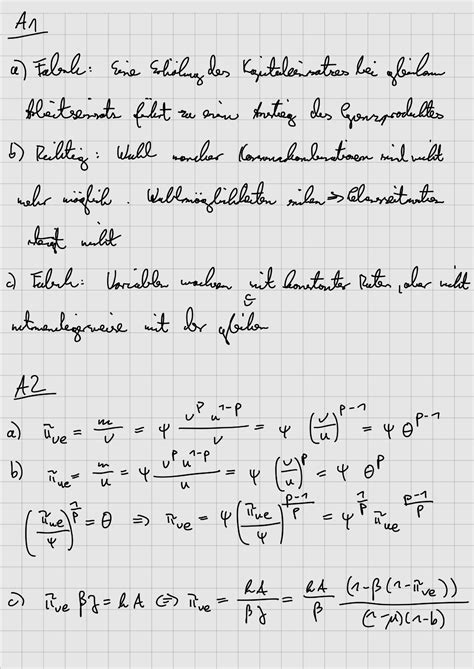 A1
a) Falsch: Eine Erhöhung des Kapitaleinsatzes bei gleichem
Arbeitseinsatz führt zu einem Anstieg des Grenzproduktes
b) Richtig: Wahl mancher Konsumkombinationen sind nicht
mehr möglich. Wahlmöglichkeiten sinken ⇒
nicht
c) Falsch: Variablen wachsen mit konstanter Raten, aber nicht
notwendigerweise mit der gleichen
A2
a) π̃_ve = m/v = ψ v^ρ u^(1-ρ) / v = ψ (v/u)^(ρ-1) = ψ θ^(ρ-1)
b) π̃_ue = m/u = ψ v^ρ u^(1-ρ) / u = ψ (v/u)^ρ = ψ θ^ρ
(π̃_ue/ψ)^(1/ρ) = θ ⇒ π̃_ve = ψ (π̃_ue/ψ)^((ρ-1)/ρ) = ψ^(1/ρ) π̃_ue^((ρ-1)/ρ)
c) π̃_ve β J = h A ⇔ π̃_ve = hA/(βJ) = hA/β (1-β(1-π̃_ve))/((1-μ)(1-b))